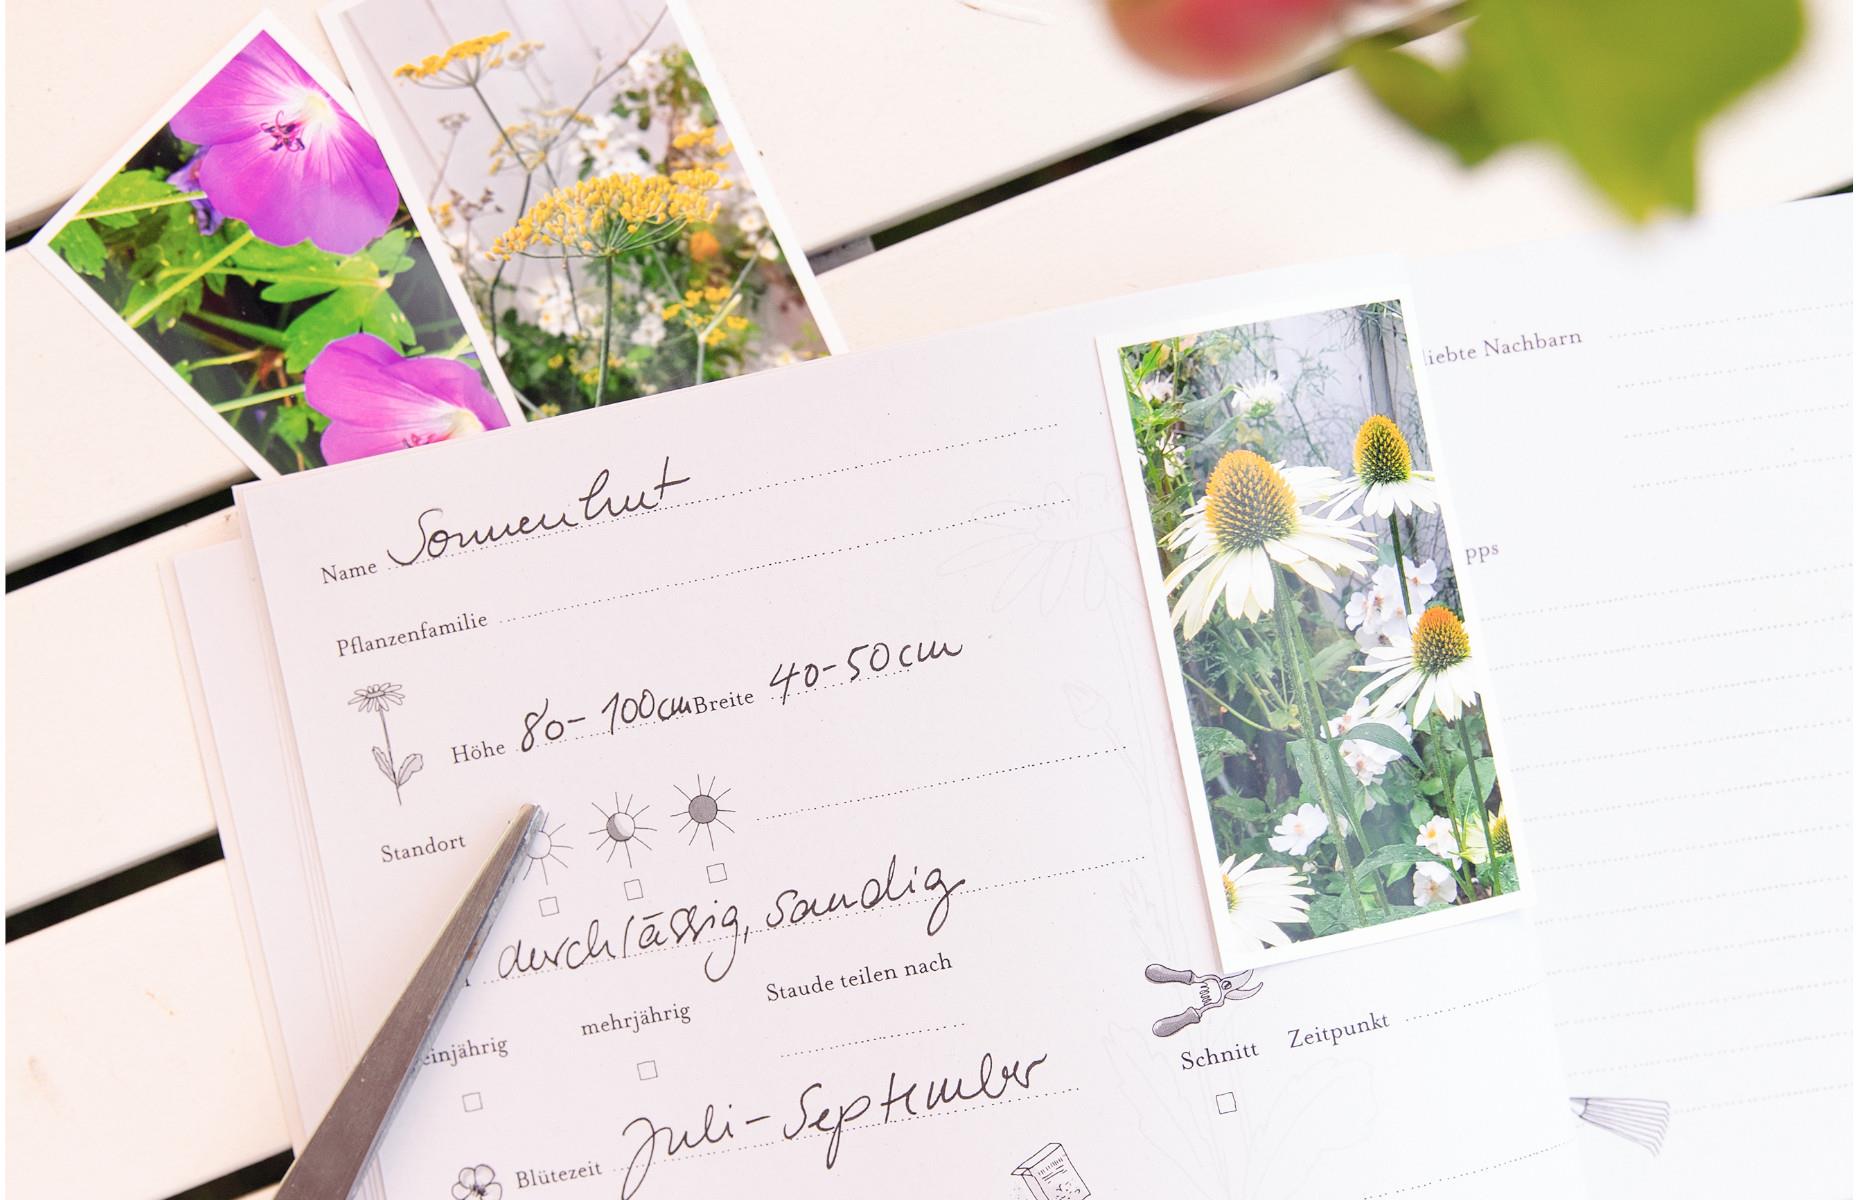 Name Sonnenhut
Pflanzenfamilie
Höhe 80-100cm Breite 40-50cm
Standort
durchlässig, sandig
einjährig mehrjährig Staude teilen nach
Blütezeit Juli-September
Schnitt Zeitpunkt
liebte Nachbarn
pps